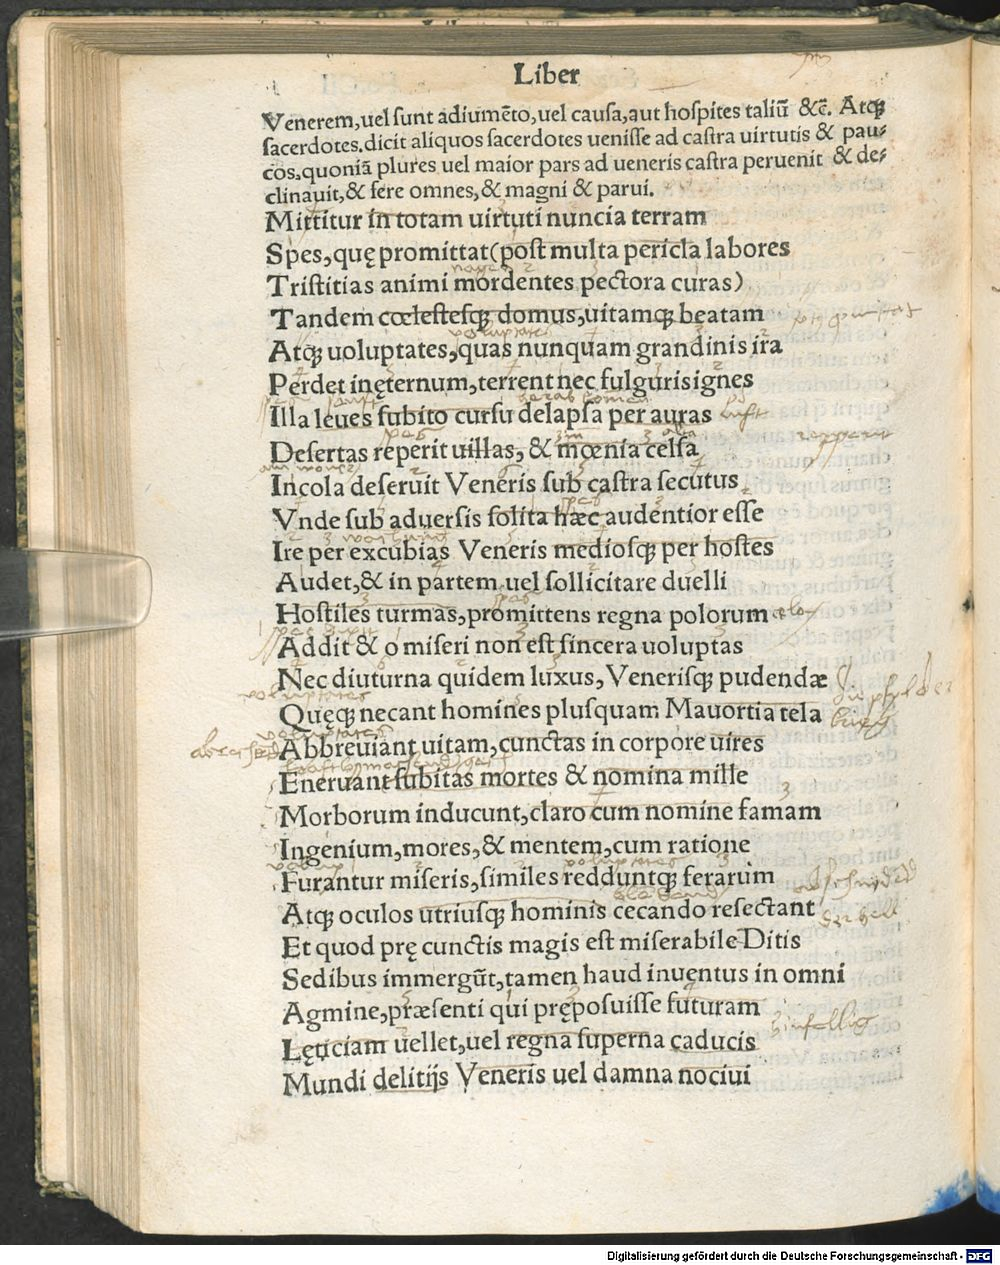 Liber
Venerem,uel sunt adiumẽto,uel causa,aut hospites taliũ &c̃. Atq;
sacerdotes.dicit aliquos sacerdotes uenisse ad castra uirtutis & pau⸗
cos,quoniã plures uel maior pars ad ueneris castra peruenit & de⸗
clinauit,& fere omnes,& magni & parui.
Mittitur in totam uirtuti nuncia terram
Spes,quę promittat(post multa pericla labores
Tristitias animi mordentes pectora curas)
Tandem cœlestesq; domus,uitamq; beatam
Atq; uoluptates,quas nunquam grandinis ira
voluptates
Perdet inęternum,terrent nec fulguris ignes
Illa leues subito cursu delapsa per auras
luft
Desertas reperit uillas, & mœnia celsa
spes
Incola deseruit Veneris sub castra secutus
Vnde sub aduersis solita hæc audentior esse
spes
Ire per excubias Veneris mediosq; per hostes
Audet,& in partem uel sollicitare duelli
Hostiles turmas,promittens regna polorum
spes
Addit & o miseri non est sincera uoluptas
Nec diuturna quidem luxus, Venerisq; pudendæ
Quęq; necant homines plusquam Mauortia tela
voluptates
Abbreuiant uitam,cunctas in corpore uires
voluptates
Eneruant subitas mortes & nomina mille
Morborum inducunt,claro cum nomine famam
Ingenium,mores,& mentem,cum ratione
Furantur miseris,similes redduntq; ferarum
voluptates
Atq; oculos utriusq; hominis cecando resectant
Et quod prę cunctis magis est miserabile Ditis
der hell
Sedibus immergũt,tamen haud inuentus in omni
Agmine,præsenti qui pręposuisse futuram
Lęticiam uellet,uel regna superna caducis
hinfellig
Mundi delitijs Veneris uel damna nociui
Digitalisierung gefördert durch die Deutsche Forschungsgemeinschaft - DFG